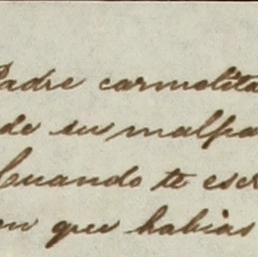 Padre carmelita
de su malpa
Cuando te escr
en que habias